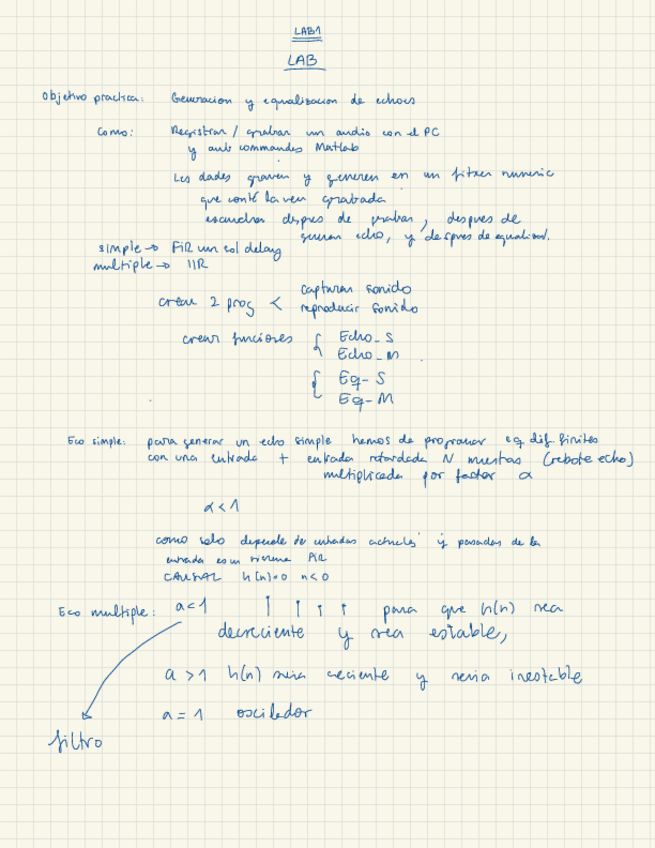 LAB1
LAB
Objetivo practica: Generacion y equalizacion de echoes
Como: Registrar / grabar un audio con el PC
y amb commandes Matlab
Les dades graven y generen en un fitxer numeric
que conté la veu grabada
escuchar despres de grabar, despues de
generar echo, y despres de equalitzar.
simple → FIR un sol delay
multiple → IIR
crear 2 prog < capturar sonido
reproducir sonido
crear funciones { Echo_S
Echo_M
{ Eq-S
Eq-M
Eco simple: para generar un echo simple hemos de programar eq dif. finites
con una entrada + entrada retardada N muestras (rebote echo)
multiplicada por factor α
α < 1
como solo depende de entradas actuales y pasadas de la
entrada es un sistema FIR
CAUSAL h(n)=0 n<0
Eco multiple: a<1 para que h(n) sea
decreciente y sea estable,
a > 1 h(n) seria creciente y seria inestable
a = 1 oscilador
filtro